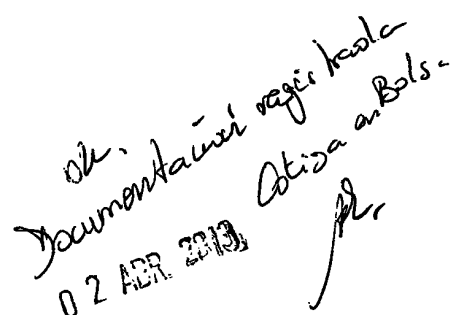 ok.
Documentación registrada
Cotiza en Bols.
02 ABR. 2013